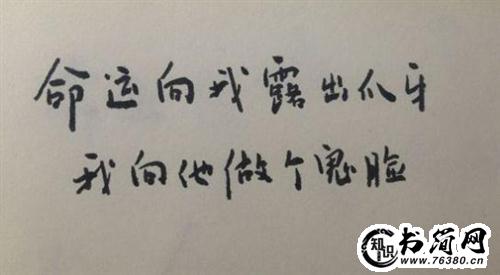 命运向我露出爪牙
我向他做个鬼脸
知识
书简网
www.76380.cn